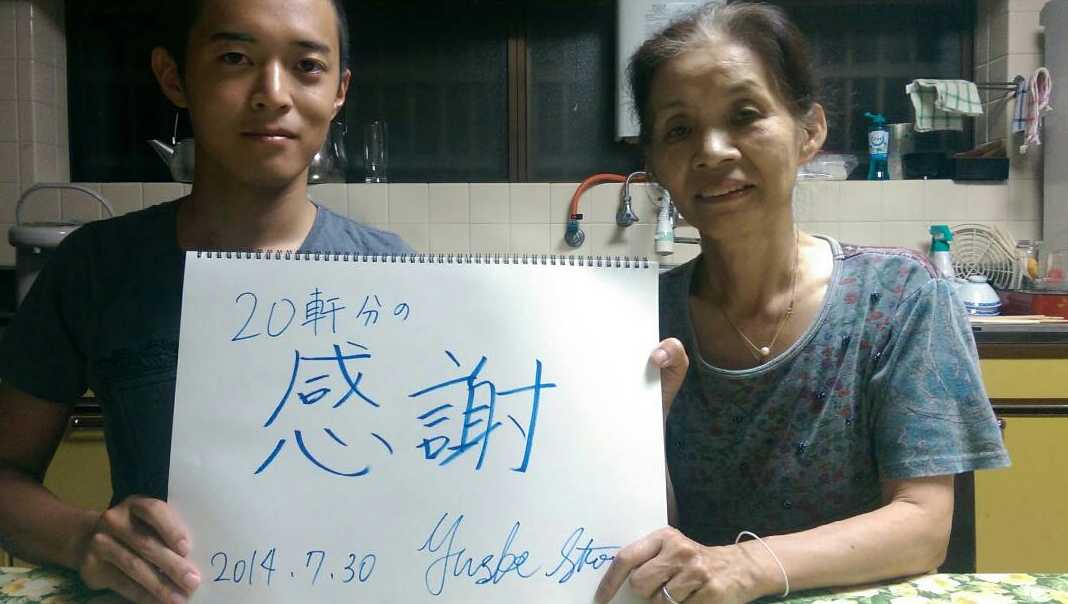 20軒分の
感謝
2014.7.30